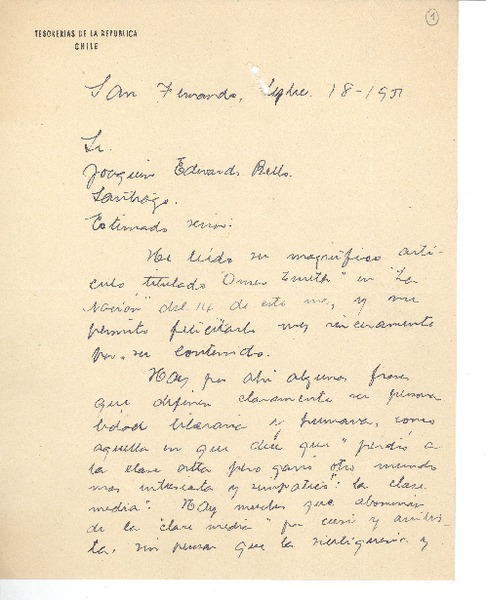 1
TESORERIAS DE LA REPUBLICA
CHILE
San Fernando, Sepbre. 18-1951
Sr.
Joaquin Edwards Bello.
Santiago.
Estimado señor:
He leído su magnífico artí-
culo, titulado "Omer Emeth" en "La
Nación" del 14 de este mes, y me
permito felicitarlo muy sinceramente
por su contenido.
Hay por ahi algunas frases
que definen claramente su persona-
lidad literaria y humana, como
aquella en que dice que "perdió a
la clase alta pero ganó otro mundo
mas interesante y simpático": la clase
media". Hay muchos que abominan
de la "clase media" por cursi y arribis-
ta, sin pensar que la inteligencia y